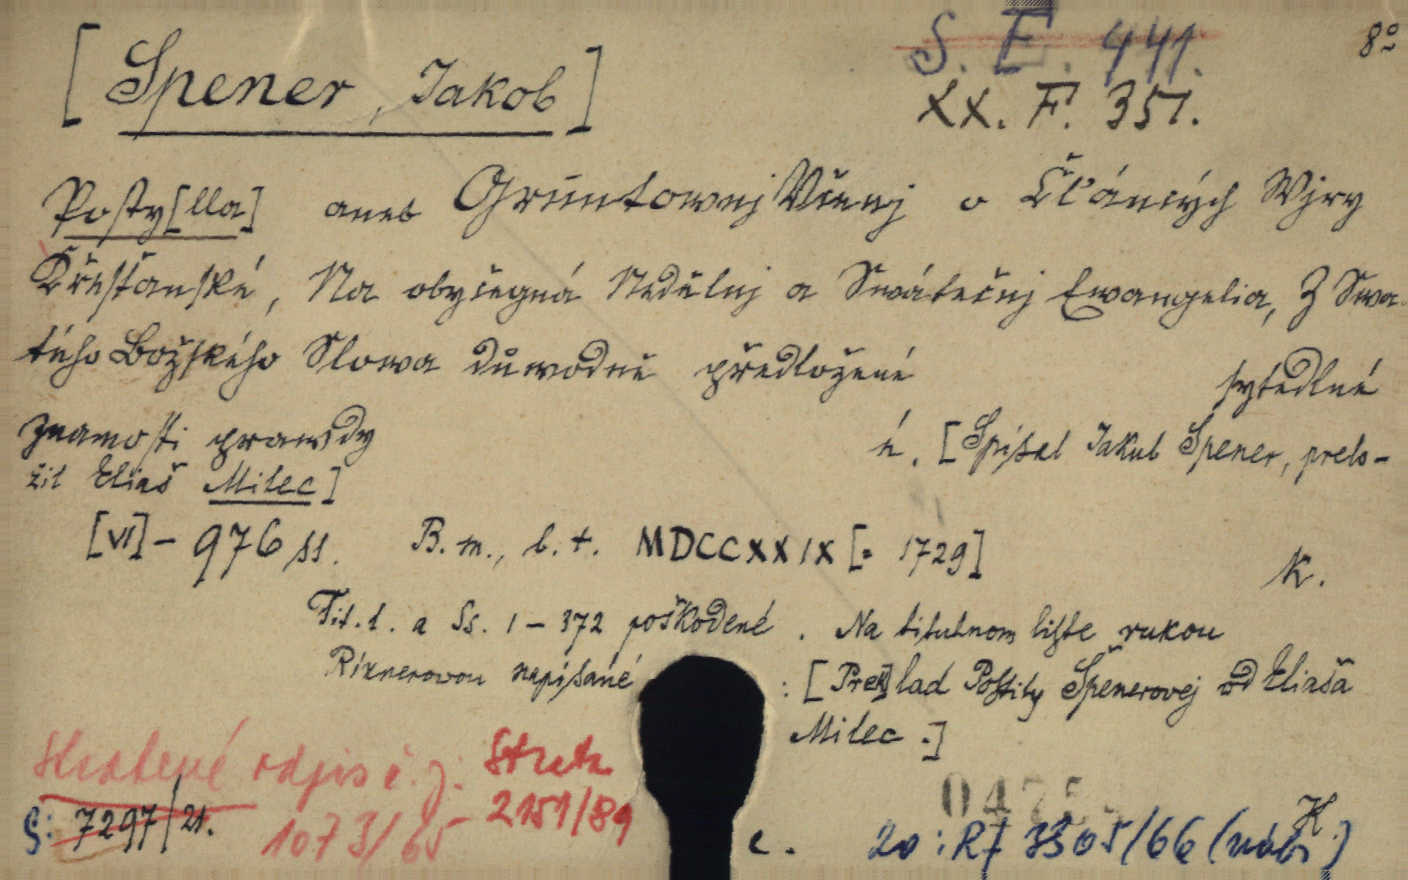 [Spener, Jakob]
S. E. 441.
8°
XX. F. 351.
Posty[lla] aneb Grúntownj Včenj o Čľáncých Wjry
Křesťanské, Na obyčegná Nedělnj a Swátečnj Ewangelia, Z Swa-
tého Božského Slowa důwodně předložené
sytedlné
známosti prawdy
é. [Spísal Jakub Spener, prelo-
žil Eliaš Milec]
[VI] - 976 ss. B. m., b. t. MDCCXXIX [= 1729]
K.
Tit. l. a Ss. 1 - 372 poškodené. Na titulnom liste rukou
Riznerovou napísané : [Preklad Postily Špenerovej od Eliaša
Milec.]
Stratené odpis č. j. Strata
1073/65 2151/89
S: 7297/21.
0475
K.
c. 20: Rf 3305/66 (nábi)